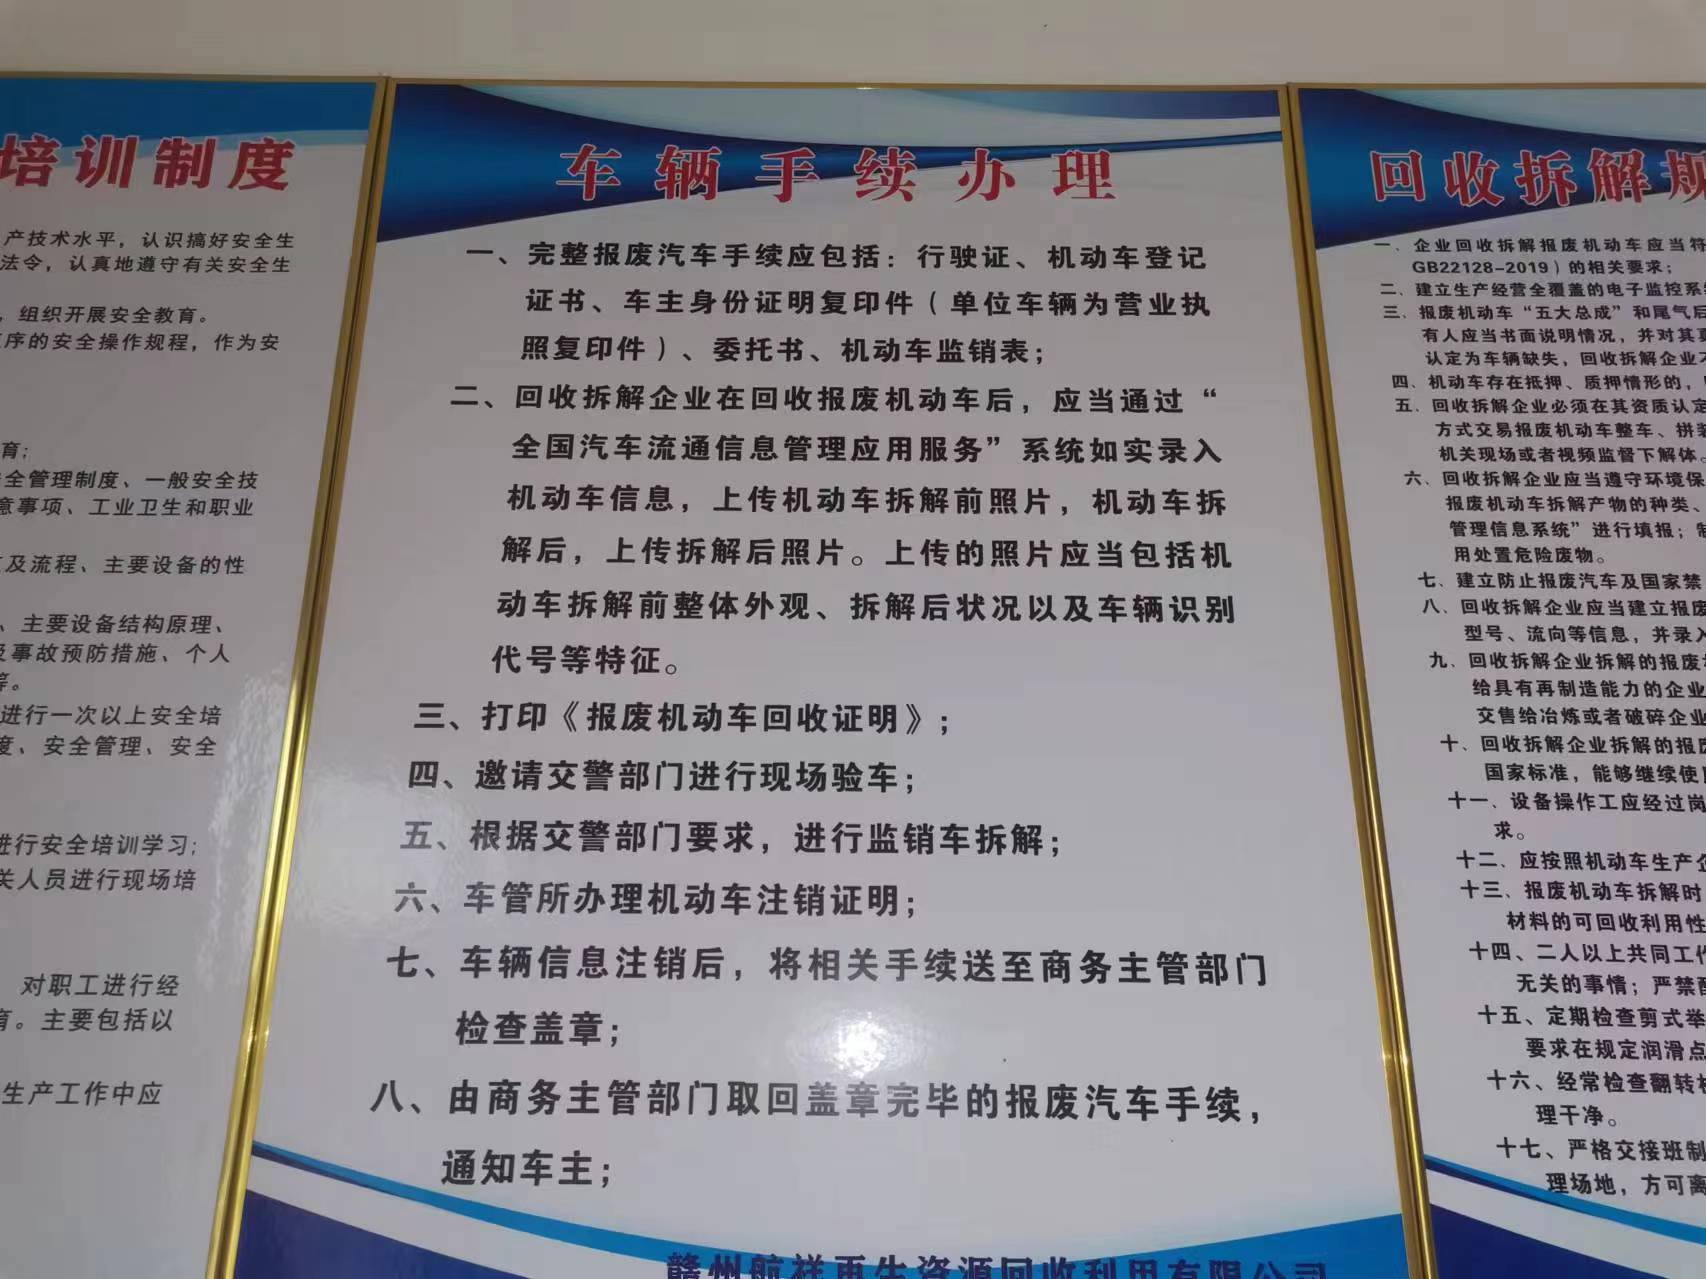 培训制度
产技术水平，认识搞好安全生
法令，认真地遵守有关安全生
，组织开展安全教育。
序的安全操作规程，作为安
育；
全管理制度、一般安全技
意事项、工业卫生和职业
及流程、主要设备的性
、主要设备结构原理、
及事故预防措施、个人
等。
进行一次以上安全培
度、安全管理、安全
进行安全培训学习；
关人员进行现场培
对职工进行经
育。主要包括以
生产工作中应
车辆手续办理
一、完整报废汽车手续应包括：行驶证、机动车登记
证书、车主身份证明复印件（单位车辆为营业执
照复印件）、委托书、机动车监销表；
二、回收拆解企业在回收报废机动车后，应当通过“
全国汽车流通信息管理应用服务”系统如实录入
机动车信息，上传机动车拆解前照片，机动车拆
解后，上传拆解后照片。上传的照片应当包括机
动车拆解前整体外观、拆解后状况以及车辆识别
代号等特征。
三、打印《报废机动车回收证明》；
四、邀请交警部门进行现场验车；
五、根据交警部门要求，进行监销车拆解；
六、车管所办理机动车注销证明；
七、车辆信息注销后，将相关手续送至商务主管部门
检查盖章；
八、由商务主管部门取回盖章完毕的报废汽车手续，
通知车主；
赣州航祥再生资源回收利用有限公司
回收拆解规
一、企业回收拆解报废机动车应当符
GB22128-2019）的相关要求；
二、建立生产经营全覆盖的电子监控系
三、报废机动车“五大总成”和尾气后
有人应当书面说明情况，并对其真
认定为车辆缺失，回收拆解企业不
四、机动车存在抵押、质押情形的，
五、回收拆解企业必须在其资质认定
方式交易报废机动车整车、拼装
机关现场或者视频监督下解体。
六、回收拆解企业应当遵守环境保
报废机动车拆解产物的种类、
管理信息系统”进行填报；制
用处置危险废物。
七、建立防止报废汽车及国家禁
八、回收拆解企业应当建立报废
型号、流向等信息，并录入
九、回收拆解企业拆解的报废
给具有再制造能力的企业
交售给冶炼或者破碎企业
十、回收拆解企业拆解的报废
国家标准，能够继续使用
十一、设备操作工应经过岗
求。
十二、应按照机动车生产企
十三、报废机动车拆解时
材料的可回收利用性
十四、二人以上共同工作
无关的事情；严禁酒
十五、定期检查剪式举
要求在规定润滑点
十六、经常检查翻转
理干净。
十七、严格交接班制
理场地，方可离